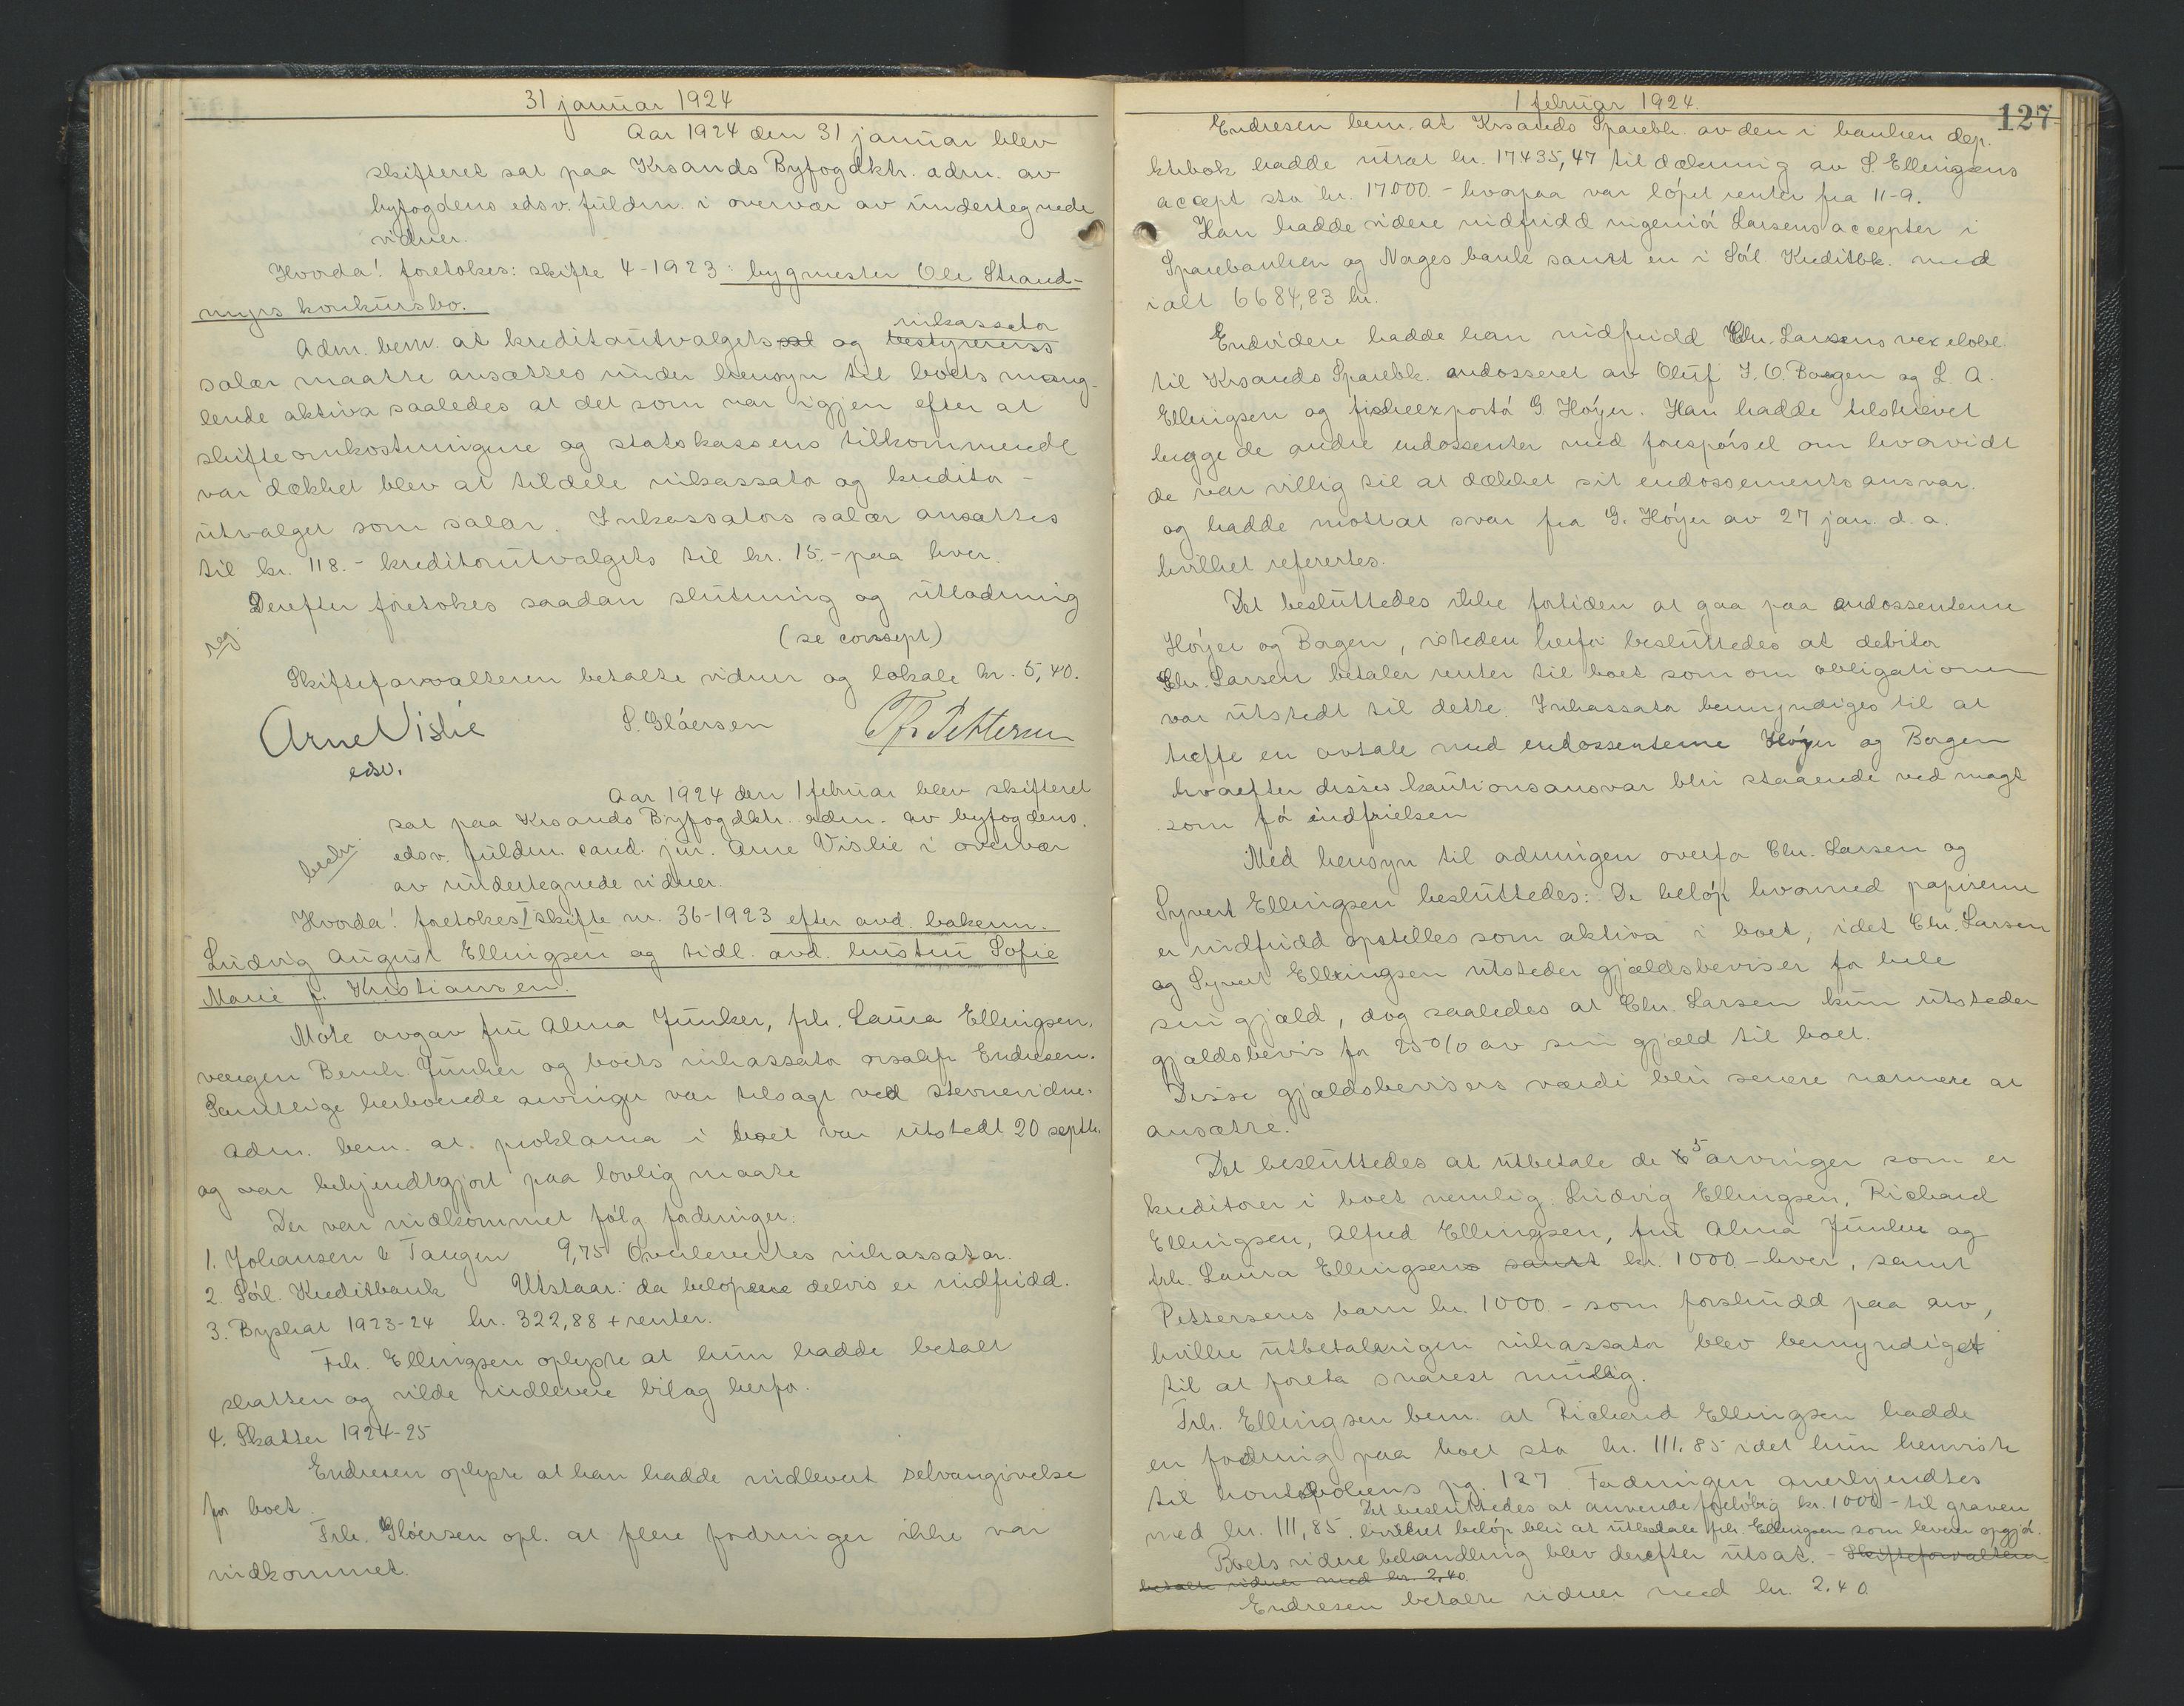 31 januar 1924
Aar 1924 den 31 januar blev
skifteret sat paa Krsands Byfogdktr. adm. av
byfogdens edsv. fuldm. i overvær av undertegnede
vidner.
Hvorda! foretokes: skifte 4-1923: bygmester Ole Strand-
myrs konkursbo.
Adm. bem. at kreditorutvalgets sal og bestyrerens inkassator
salær maatte ansættes under hensyn til boets mang-
lende aktiva saaledes at det som var igjen efter at
skifteomkostningene og statskassens tilkommende
var dækket blev at tildele inkassator og kreditor-
utvalget som salær. Inkassators salær ansattes
til kr. 118.- kreditorutvalgets til kr. 15.- paa hver.
Derefter foretokes saadan slutning og utlodning
reg.
(se consept)
Skifteforvalteren betalte vidner og lokale kr. 5,40.
Arne Vislie S. Glóersen Th. Pettersen
edsv.
Aar 1924 den 1 februar blev skifteret
sat paa Krsands Byfogdktr. adm. av byfogdens
edsv. fuldm. cand. jur. Arne Vislie i overvær
beskr.
av undertegnede vidner.
Hvorda! foretokes I skifte nr. 36-1923 efter avd. bakerm.
Ludvig August Ellingsen og tidl. avd. hustru Sofie
Marie f. Kristiansen.
Møte avgav fru Alma Junker, frk. Laura Ellingsen,
værgen Bernh. Junker og boets inkassator orsakfr Endresen.
Samtlige herboende arvinger var tilsagt ved stevnevidne.
Adm. bem. at proklama i boet var utstedt 20 septbr.
og var bekjendtgjort paa lovlig maate
Der var indkommet følg fodringer:
1. Johansen & Tangen 9,75 Overlevertes inkassator.
2. Sórl. Kreditbank Utstaar: da belópene delvis er indfridd.
3. Byskat 1923-24 kr. 322,88 + renter.
Frk. Ellingsen oplyste at hun hadde betalt
skatten og vilde indlevere bilag herfor.
4. Skatter 1924-25
Endresen oplyste at han hadde indlevert selvangivelse
for boet.
Frk. Glóersen opl. at flere fodringer ikke var
indkommet.
1 februar 1924.
127
Endresen bem. at Krsands Sparebk. av den i banken dep.
ktrbok hadde uttat kr. 17435,47 til dækning av S. Ellingsens
accept sto kr. 17000.- hvorpaa var lópet renter fra 11-9.
Han hadde videre indfridd ingeniór Larsens accepter i
Sparebanken og Norges bank samt en i Sórl. Kreditbk. med
ialt 6684,83 kr.
Endvidere hadde han indfridd Chr. Larsens vexelobl.
til Krsands Sparebk. endosseret av Oluf J. O. Borgen og L. A.
Ellingsen og fiskeexportór G. Hóyer. Han hadde tilskrevet
begge de andre endossenter med forespórsel om hvorvidt
de var villig til at dækket sit endossementsansvar.
og hadde mottat svar fra G. Hóyer av 27 jan. d. a.
hvilket refererte​s.
Det besluttedes ikke fortiden at gaa paa endossentene
Hóyer og Borgen, isteden herfor besluttedes at debitor
Chr. Larsen betaler renter til boet som om obligationen
var utstedt til dette. Inkassator bemyndiges til at
træffe en avtale med endossenterne Hóyer og Borgen
hvorefter disses kautionsansvar blir staaende ved magt
som fór indfrielsen
Med hensyn til ordningen overfor Chr. Larsen og
Syvert Ellingsen besluttedes: De belóp hvormed papirerne
er indfridd opstilles som aktiva i boet, idet Chr. Larsen
og Syvert Ellingsen utsteder gjældsbeviser for hele
sin gjæld, dog saaledes at Chr. Larsen kun utsteder
gjældsbevis for 25% av sin gjæld til boet.
Disse gjældsbevisers værdi blir senere nærmere at
ansætte.
Det besluttedes at utbetale de 5 arvinger som er
kreditorer i boet nemlig Ludvig Ellingsen, Richard
Ellingsen, Alfred Ellingsen, fru Alma Junker og
frk. Laura Ellingsens samt kr. 1000.- hver, samt
Pettersens barn kr. 1000.- som forskudd paa arv,
hvilke utbetalingen inkassator blev bemyndiget
til at foreta snarest mulig.
Frk. Ellingsen bem. at Richard Ellingsen hadde
en fodring paa boet sto kr. 111.85 idet hun henviste
til kontobokens pg. 127. Fodringen anerkjendtes
med kr. 111,85. Det besluttedes at anvende foreløbig kr. 1000.- til graven
hvilket belóp blir at utbetale frk. Ellingsen som leverer opgjór.
Boets videre behandling blev derefter utsat. - Skifteforvalteren
betalte vidner med kr. 2,40
Endresen betalte vidner med kr. 2.40